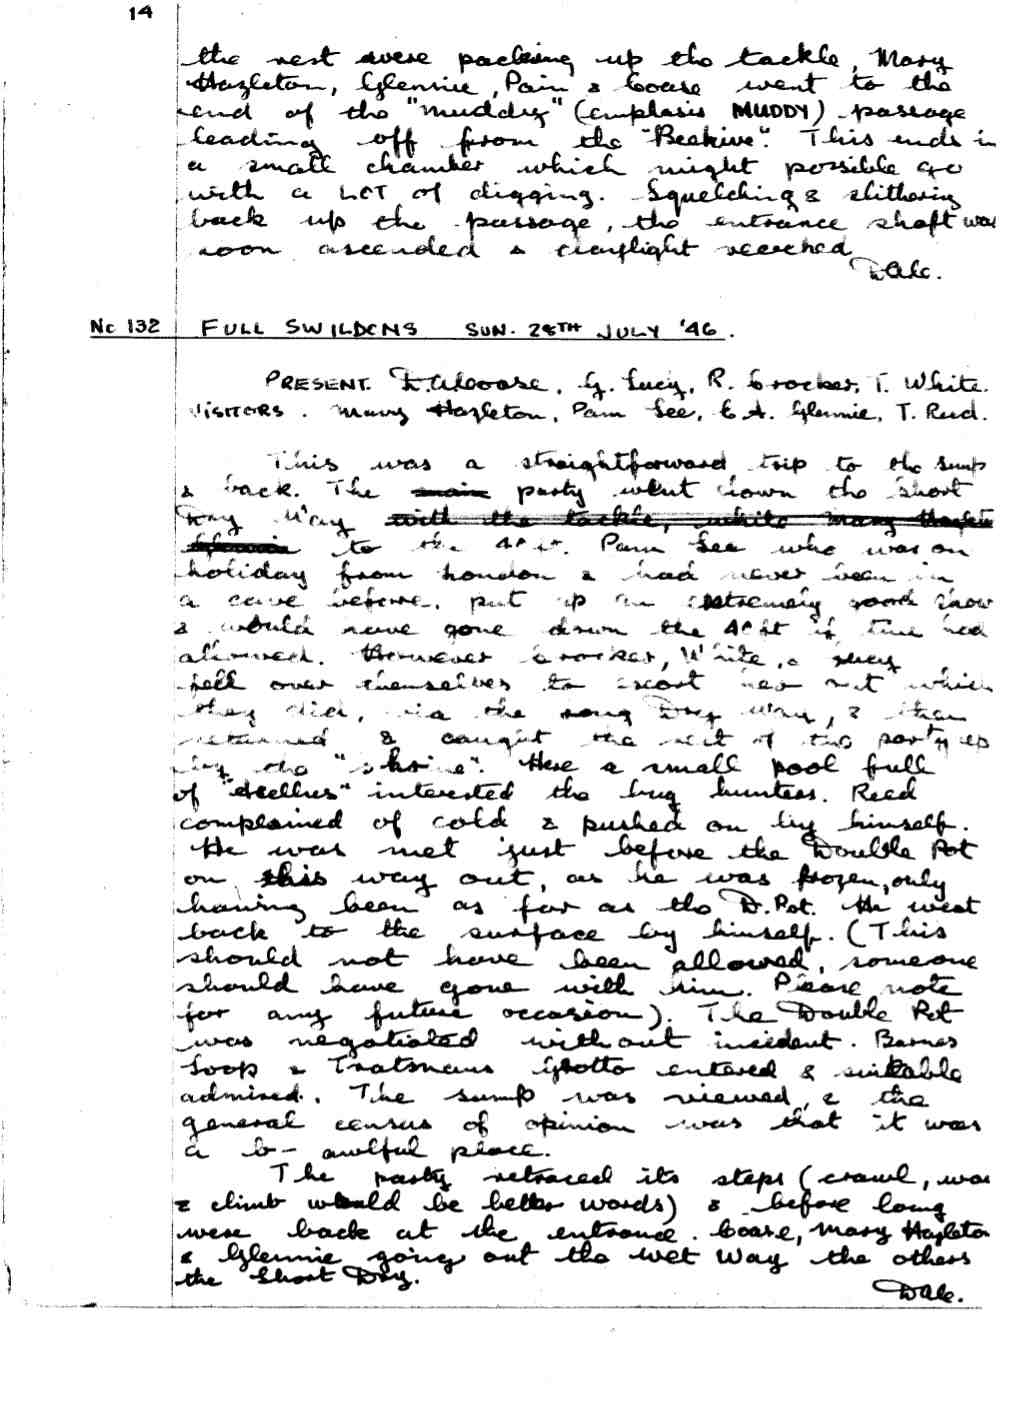 14
the rest were packing up the tackle, Mary
Hazleton, Glennie, Pain & Coase went to the
end of the "muddy" (emphasis MUDDY) passage
leading off from the "Beehive". This ends in
a small chamber which might possible go
with a LOT of digging. Squelching & slithering
back up the passage, the entrance shaft was
soon ascended & daylight reached
DAC.
No 132 FULL SWILDONS SUN. 28TH JULY '46.
PRESENT. D.A.Coase, G. Lucy, R. Crocker, T. White.
VISITORS. Mary Hazleton, Pam Lee, C.A. Glennie, T. Reed.
This was a straightforward trip to the sump
& back. The main party went down the Short
Dry Way with the tackle, while Mary Hazleton
Glennie to the 40 ft. Pam Lee who was on
holiday from London & had never been in
a cave before, put up an extremely good show
& would have gone down the 40 ft if time had
allowed. However Crocker, White, & Lucy
fell over themselves to escort her out which
they did, via the Long Dry Way, & then
returned & caught the rest of the party up
by the "shrine". Here a small pool full
of "Asellus" interested the bug hunters. Reed
complained of cold & pushed on by himself.
He was met just before the Double Pot
on his way out, as he was frozen, only
having been as far as the D. Pot. He went
back to the surface by himself. (This
should not have been allowed, someone
should have gone with him. Please note
for any future occasion). The Double Pot
was negotiated without incident. Barnes
Loop & Tratmans Grotto entered & suitable
admired. The sump was viewed, & the
general census of opinion was that it was
a b- awlful place.
The party retraced its steps (crawl, was
& climb would be better words) & before long
were back at the entrance. Coase, Mary Hazleton
& Glennie going out the Wet Way the others
the Short Dry.
DAC.